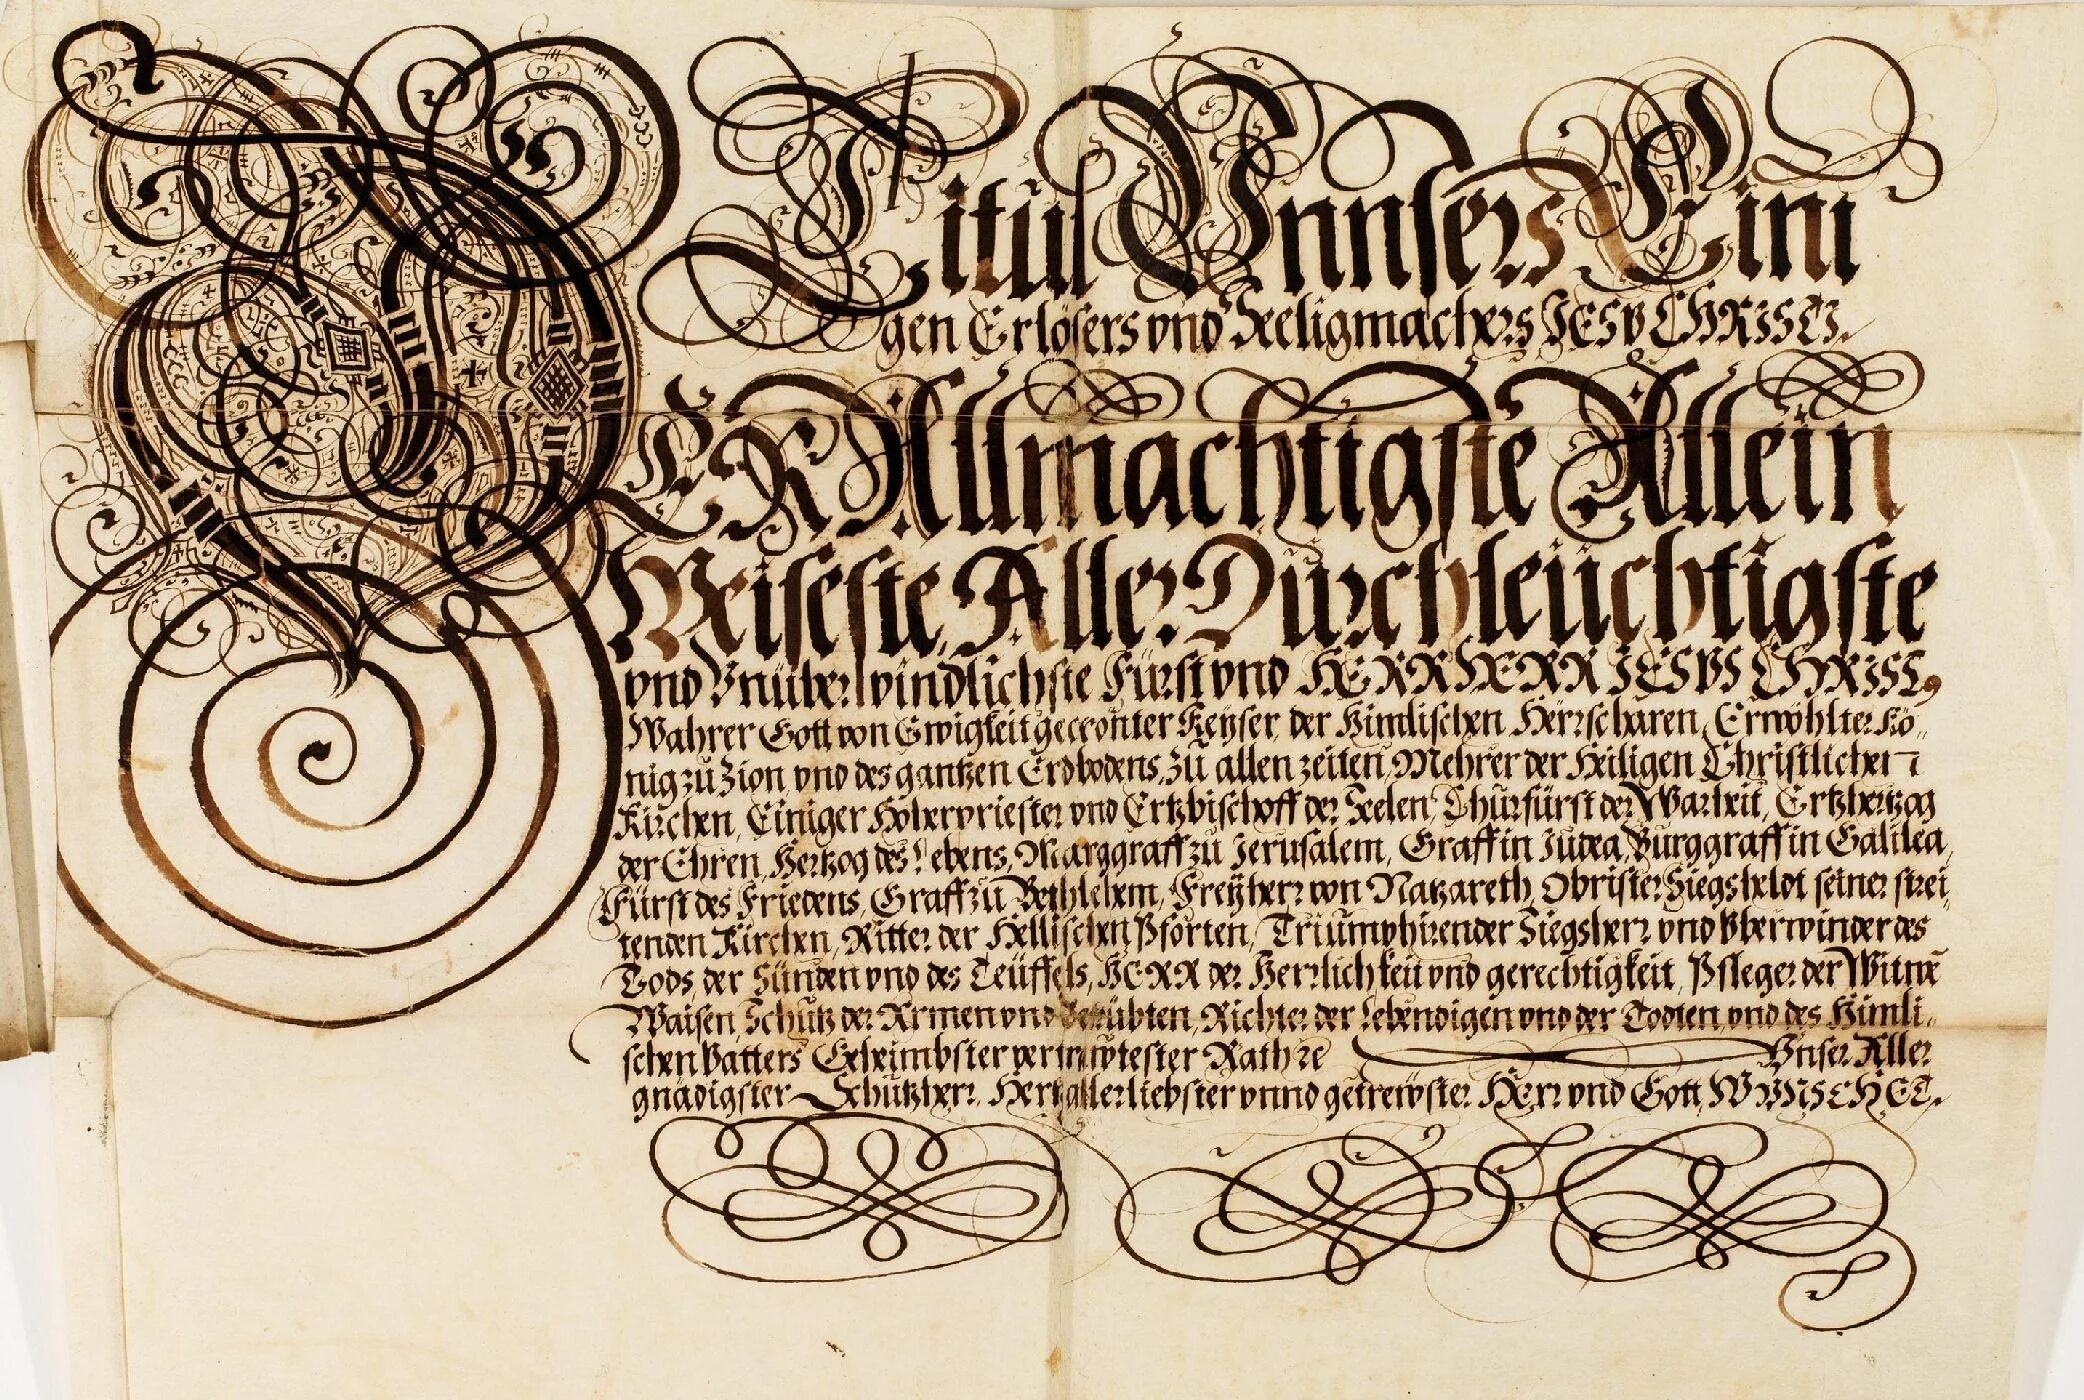 Titul Vnnsers Eini
gen Erlösers vnd Seeligmachers JESV CHRISTI.
DER Allmachtigste Allein
Weiseste, Aller Durchleüchtigste
vnd Vnüberwindlichste Fürst vnd HERR HERR JESVS CHRIST9
Wahrer Gott von Ewigkeit gecrönter Keÿser, der Himlischen Herrscharen, Erwöhlter Kö„
nig zu Zion, vnd des gantzen Erdbodens, zu allen zeiten, Mehrer der Heiligen Christlichen
Kirchen, Einiger Hoherpriester vnd Ertzbischoff der Seelen, Churfürst der Warheit, Ertzhertzog
der Ehren, Hertzog des Lebens, Marggraff zu Jerusalem, Graff in Judea, Burggraff in Galilea,
Fürst des Friedens, Graff zu Bethlehem, Freÿherr von Natzareth, Obrister Siegsheldt seiner strei„
tenden Kirchen, Ritter der Hellischen Pforten, Triumphirender Siegsherr vnd Vberwinder des
Tods, der Sünden vnd des Teüffels, HERR der Herrlichkeit vnd gerechtigkeit, Pfleger der Witwē
Waisen, Schutz der Armen vnd Betrübten, Richter der Lebendigen vnd der Todten, vnd des Himli„
schen Vatters Geheimbster vertrawtester Rath ꝛc Vnser Aller
gnädigster Schutzherr, Hertzallerliebster vnnd getrewster HErr vnd Gott, WVNSCHET.